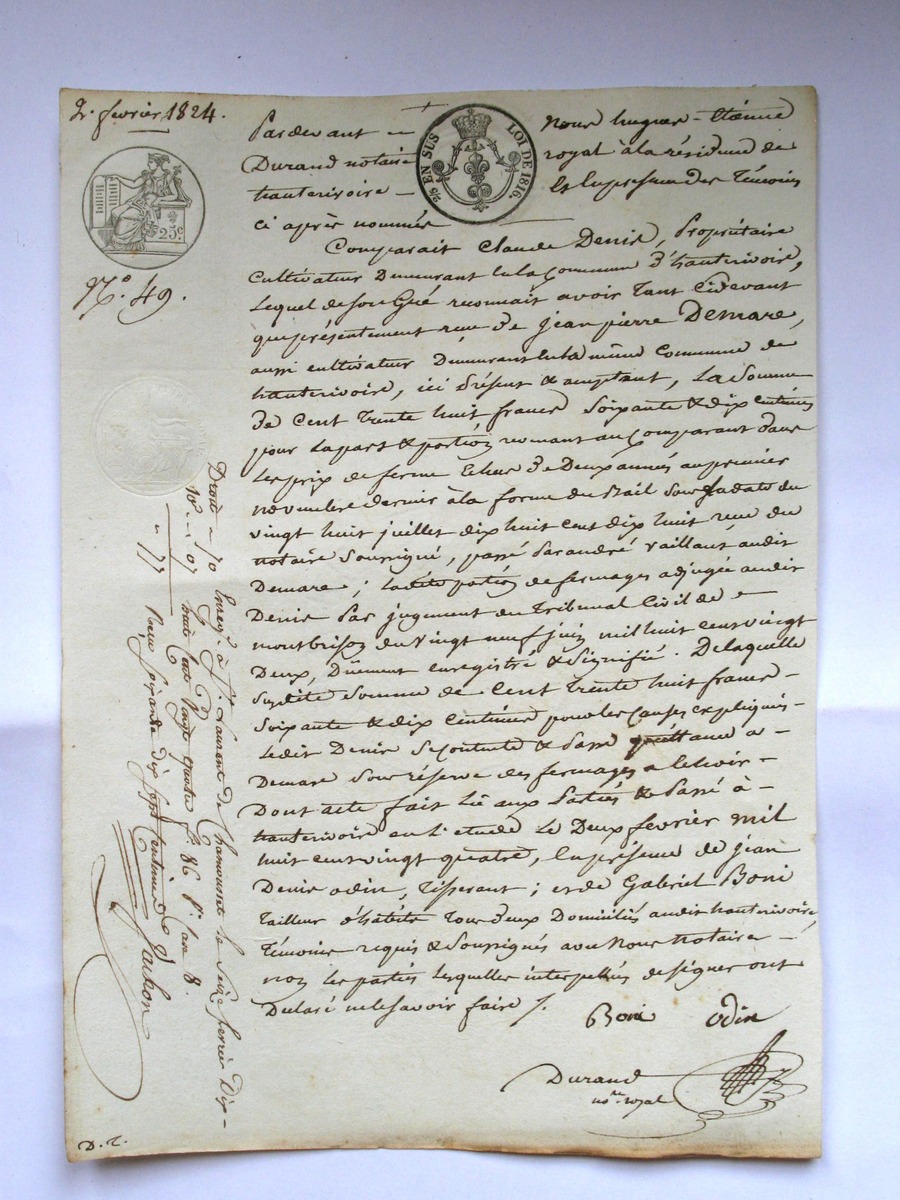 2. février 1824.
25 c.
N.º 49.
2/5 EN SUS LOI DE 1816.
Pardevant Nous hugues-Etienne
Durand notaire royal à la résidence de
hauterivoire Et en presence des Témoins
ci après nommés
Comparait Claude Denis, Propriétaire
Cultivateur Demeurant en la Commune d'hauterivoire,
Lequel de son Gré reconnait avoir Tant Cidevant
que présentement reçu de jean pierre Demare,
aussi cultivateur Demeurant en la même Commune de
hauterivoire, ici présent & acceptant, La Somme
de Cent Trente huit francs Soixante & dix Centimes
pour La part & portion revenant au Comparant dans
Les prix de ferme Echus de Deux années au premier
novembre dernier à la forme du Bail Sous La date du
vingt huit juillet dix huit cent dix huit reçu du
notaire Soussigné, passé Par andré vaillant audit
Demare; Ladite portion de fermages adjugée audit
Denis Par jugement du Tribunal Civil de
montbrison du vingt neuf juin mil huit cent vingt
Deux, Dûement enregistré & Signifié. De laquelle
Susdite Somme de Cent Trente huit francs
Soixante & dix Centimes pour les Causes expliquées
Ledit Denis Se Contente & Passe quittance a
Demare Sous réserve des fermages a Echoir
Dont acte fait Lu aux Parties & Passé à
hauterivoire en l'etude Le Deux février mil
huit cent vingt quatre, En présence de jean
Denis odin, Tisserant; et de Gabriel Boni
Tailleur d'habits Tous deux Domiciliés audit hauterivoire,
Témoins requis & Soussignés avec Nous Notaire
non Les parties Lesquelles interpellées de signer ont
Declaré ne le savoir faire /.
Boni odin
Durand
no.re royal
Droit 70
10e 07
77
Enreg.é à S.t Laurent de Chamousset le Seize fevrier Dix
huit Cent Vingt quatre f.º 86 r.º Case 8.
Reçu Soixante dix Sept Centimes
D. T.